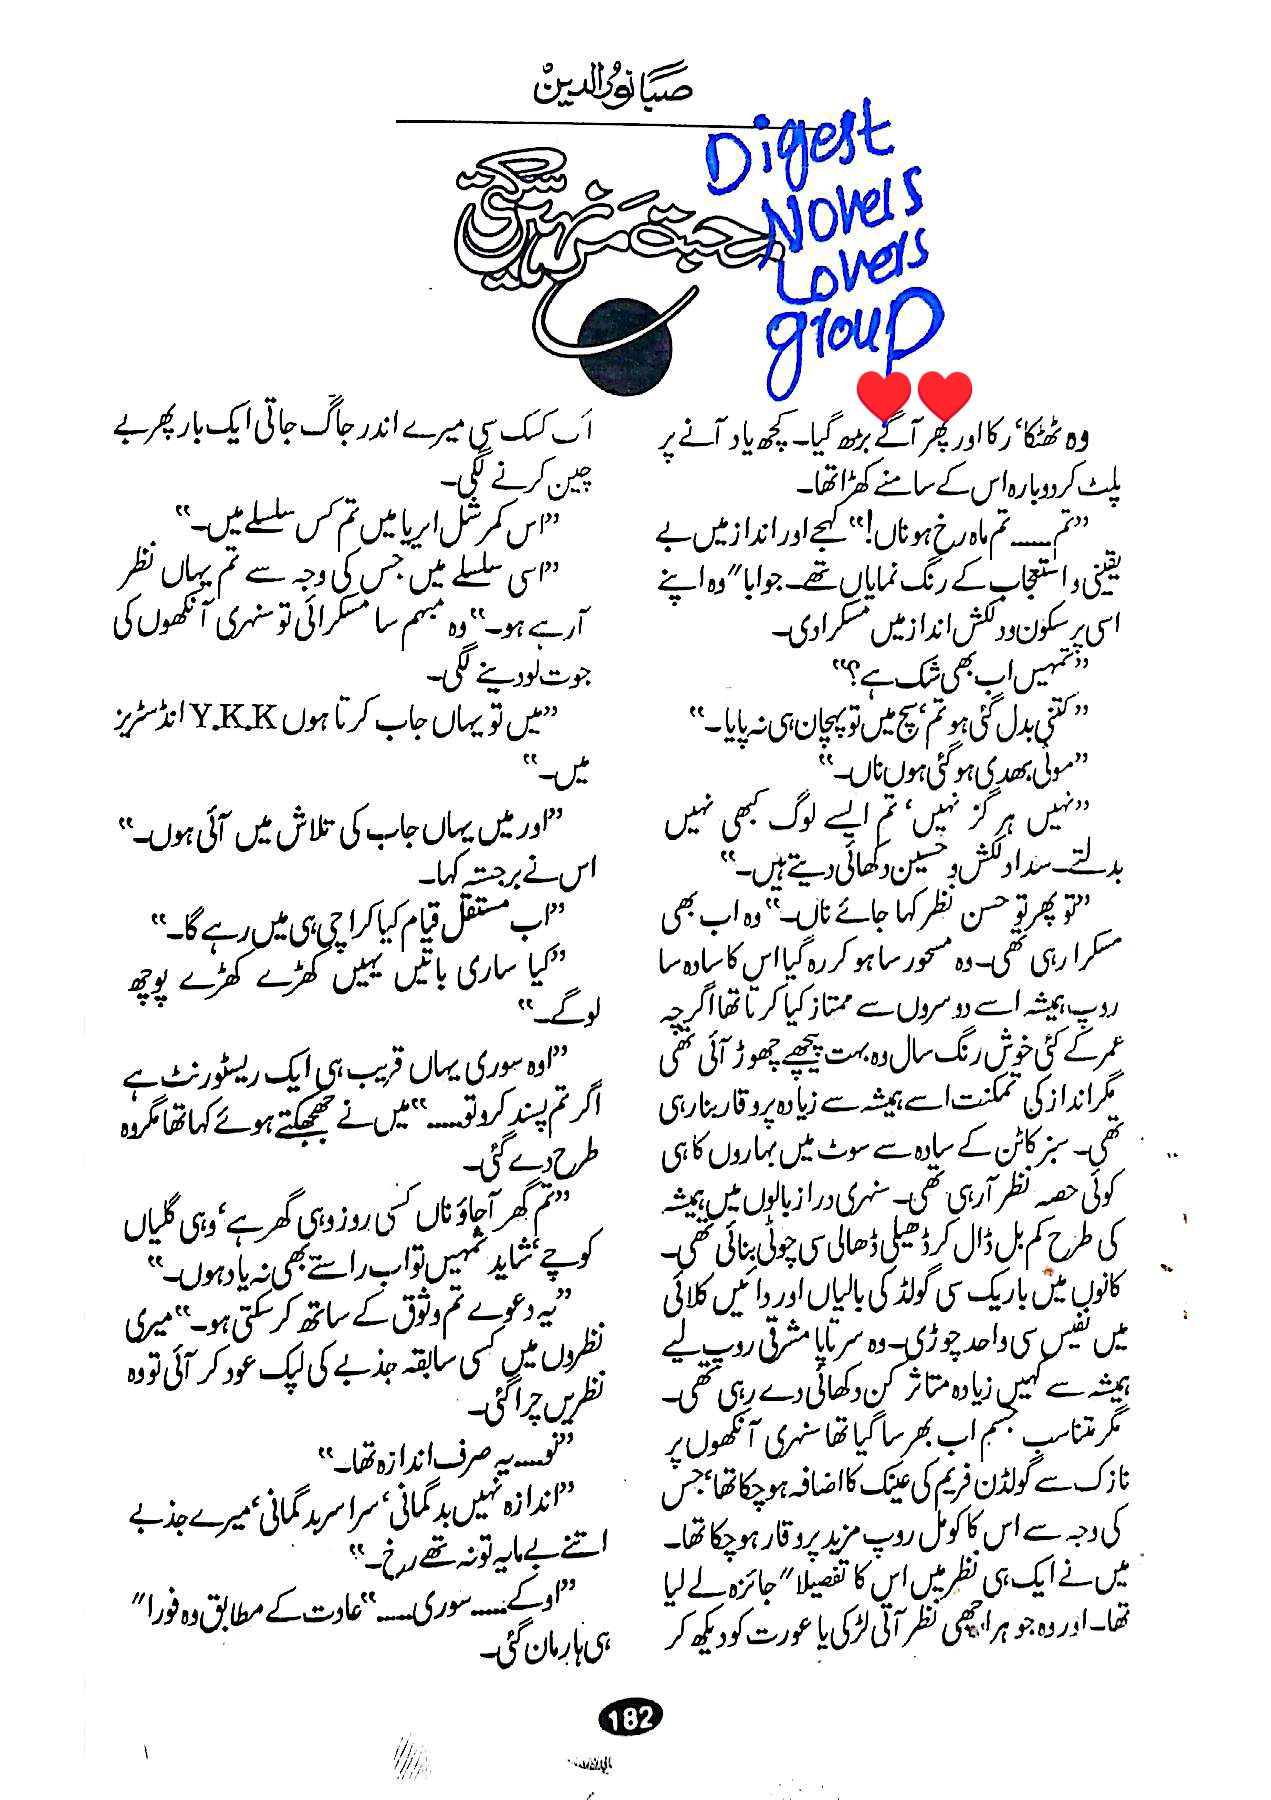 صبا نور الدین
محبت مر نہیں سکتی
Digest
Novels
Lovers
group
وہ ٹھٹکا، رکا اور پھر آگے بڑھ گیا۔ کچھ یاد آنے پر
پلٹ کر دوبارہ اس کے سامنے کھڑا تھا۔
”تم ..... تم ماہ رخ ہو ناں!“ لہجے اور انداز میں بے
یقینی و استعجاب کے رنگ نمایاں تھے۔ جوابا” وہ اپنے
اسی پرسکون و دلکش انداز میں مسکرا دی۔
”تمہیں اب بھی شک ہے؟“
”کتنی بدل گئی ہو تم، سچ میں تو پہچان ہی نہ پایا۔“
”موٹی بھدی ہو گئی ہوں ناں۔“
”نہیں ہرگز نہیں، تم ایسے لوگ کبھی نہیں
بدلتے۔ سدا دلکش و حسین دکھائی دیتے ہیں۔“
”تو پھر تو حسن نظر کہا جائے ناں۔“ وہ اب بھی
مسکرا رہی تھی۔ وہ مسحور سا ہو کر رہ گیا اس کا سادہ سا
روپ ہمیشہ اسے دوسروں سے ممتاز کیا کرتا تھا اگرچہ
عمر کے کئی خوش رنگ سال وہ بہت پیچھے چھوڑ آئی تھی
مگر انداز کی تمکنت اسے ہمیشہ سے زیادہ پروقار بنا رہی
تھی۔ سبز کاٹن کے سادہ سے سوٹ میں بہاروں کا ہی
کوئی حصہ نظر آ رہی تھی۔ سنہری دراز بالوں میں ہمیشہ
کی طرح کم بل ڈال کر ڈھیلی ڈھالی سی چوٹی بنائی تھی۔
کانوں میں باریک سی گولڈ کی بالیاں اور دائیں کلائی
میں نفیس سی واحد چوڑی۔ وہ سرتاپا مشرقی روپ لیے
ہمیشہ سے کہیں زیادہ متاثر کن دکھائی دے رہی تھی۔
مگر متناسب جسم اب بھر سا گیا تھا سنہری آنکھوں پر
نازک سے گولڈن فریم کی عینک کا اضافہ ہو چکا تھا، جس
کی وجہ سے اس کا کومل روپ مزید پروقار ہو چکا تھا۔
میں نے ایک ہی نظر میں اس کا تفصیلا” جائزہ لے لیا
تھا۔ اور وہ جو ہر اچھی نظر آتی لڑکی یا عورت کو دیکھ کر
اک کسک سی میرے اندر جاگ جاتی ایک بار پھر بے
چین کرنے لگی۔
”اس کمرشل ایریا میں تم کس سلسلے میں۔“
”اسی سلسلے میں جس کی وجہ سے تم یہاں نظر
آ رہے ہو۔“ وہ مبہم سا مسکرائی تو سنہری آنکھوں کی
جوت لو دینے لگی۔
”میں تو یہاں جاب کرتا ہوں Y.K.K انڈسٹریز
میں۔“
”اور میں یہاں جاب کی تلاش میں آئی ہوں۔“
اس نے برجستہ کہا۔
”اب مستقل قیام کیا کراچی ہی میں رہے گا۔“
”کیا ساری باتیں یہیں کھڑے کھڑے پوچھ
لو گے۔“
”اوہ سوری یہاں قریب ہی ایک ریسٹورنٹ ہے
اگر تم پسند کرو تو .....“ میں نے جھجکتے ہوئے کہا تھا مگر وہ
طرح دے گئی۔
”تم گھر آ جاؤ ناں کسی روز وہی گھر ہے، وہی گلیاں
کوچے، شاید تمہیں تو اب راستے بھی نہ یاد ہوں۔“
”یہ دعوے تم وثوق کے ساتھ کر سکتی ہو۔“ میری
نظروں میں کسی سابقہ جذبے کی لپک عود کر آئی تو وہ
نظریں چرا گئی۔
”نو .... یہ صرف اندازہ تھا۔“
”اندازہ نہیں بدگمانی، سراسر بدگمانی، میرے جذبے
اتنے بے مایہ تو نہ تھے رخ۔“
”اوکے ..... سوری .....“ عادت کے مطابق وہ فورا”
ہی ہار مان گئی۔
182